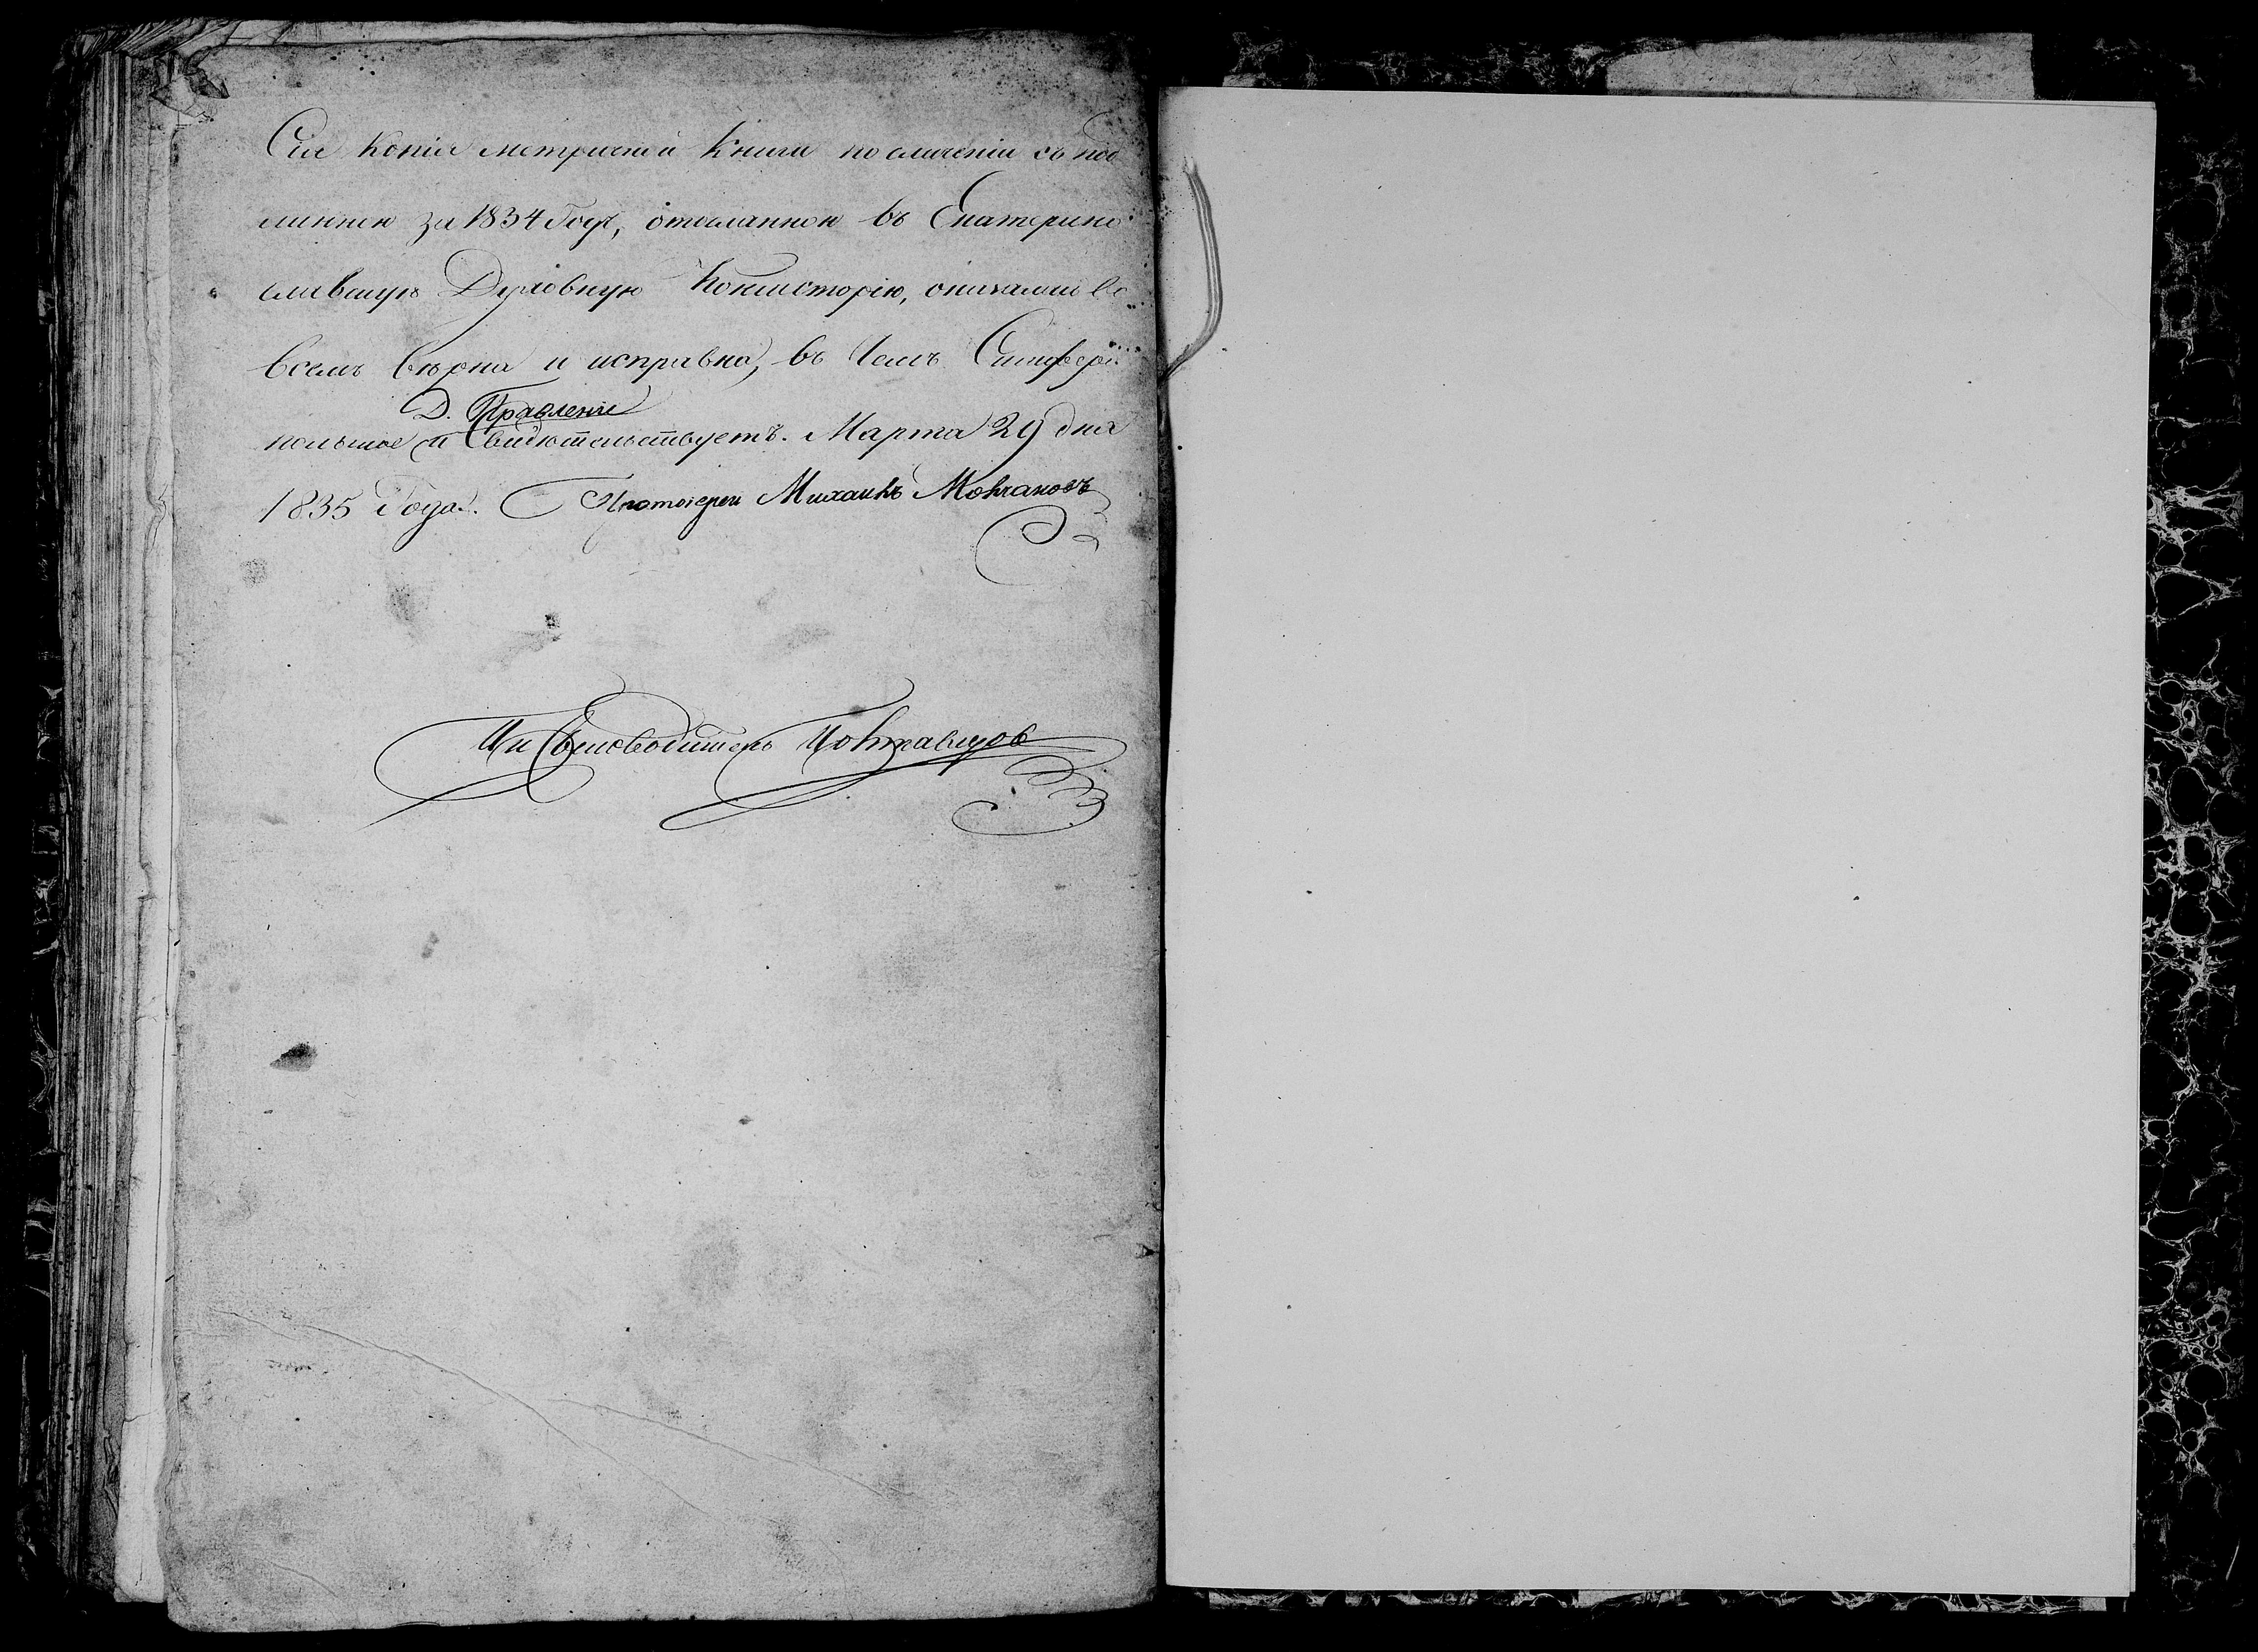 Сія копія метрической книги по сличеніи съ под
линною за 1834 Годъ, отосланною въ Екатерино
славскую Духовную Консисторію, оказалась во
всемъ верна и исправна, въ чемъ Симферо
Д. Правленіе
польское и свидетельствуетъ. Марта 29 дня
1835 Года. Протоіерей Михаилъ Молчановъ
Письмоводитель